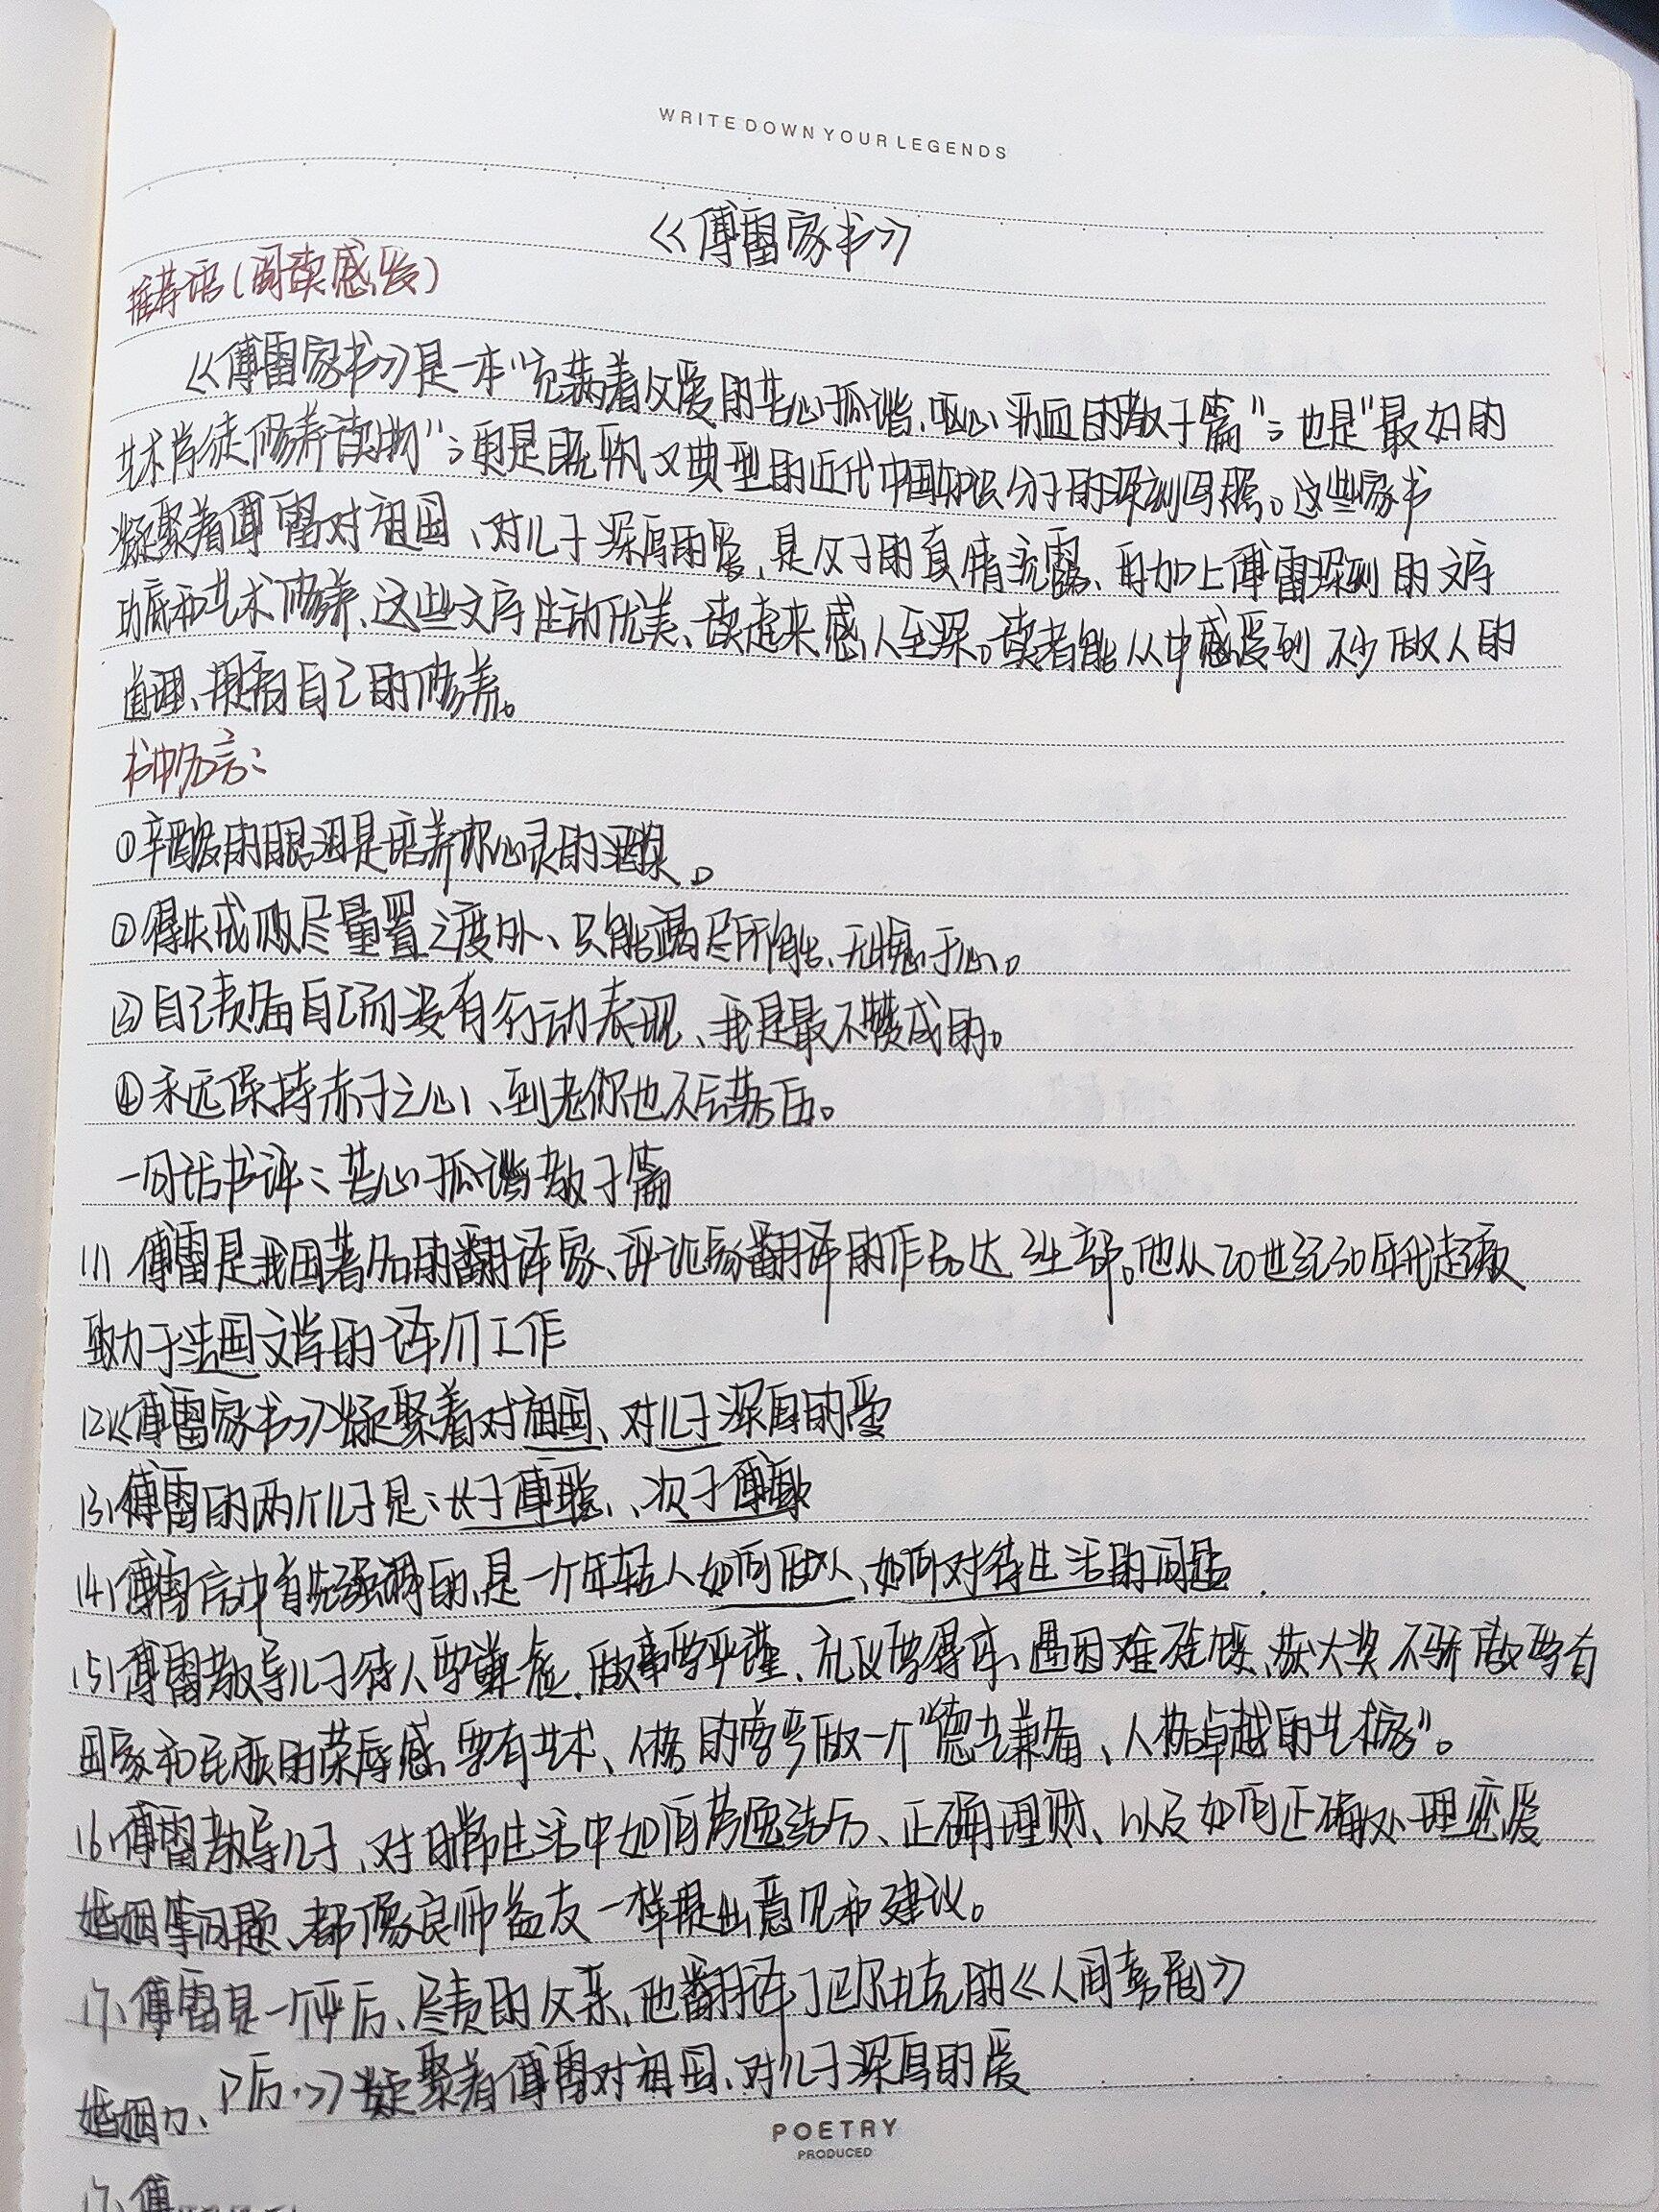 WRITE DOWN YOUR LEGENDS
《傅雷家书》
推荐语(阅读感受)
《傅雷家书》是一本"充满着父爱的苦心孤诣、呕心沥血的教子篇";也是"最好的
艺术学徒修养读物";更是既平凡又典型的近代中国知识分子的深刻写照。这些家书
凝聚着傅雷对祖国、对儿子深厚的爱,是父子的真情流露、再加上傅雷深刻的文字
功底和艺术修养、这些文字生动优美、读起来感人至深。读者能从中感受到不少做人的
道理、提高自己的修养。
书中名言:
①辛酸的眼泪是培养你心灵的酒浆。
②得失成败尽量置之度外、只能竭尽所能、无愧于心。
③自己责备自己而没有行动表现、我是最不赞成的。
④永远保持赤子之心、到老你也不会落伍。
一句话书评:苦心孤诣教子篇
(1)傅雷是我国著名的翻译家、评论家翻译的作品达34部。他从20世纪30年代起
致力于法国文学的译介工作
(2)《傅雷家书》凝聚着对祖国、对儿子深厚的爱
(3)傅雷的两个儿子是:长子傅聪、次子傅敏
(4)傅雷信中首先强调的,是一个年轻人如何做人、如何对待生活的问题
(5)傅雷教导儿子待人要谦虚、做事要严谨、礼仪要得体、遇困难不气馁、获大奖不骄傲要有
国家和民族的荣辱感,要有艺术、人格的尊严做一个"德艺兼备、人格卓越的艺术家"。
(6)傅雷教导儿子、对日常生活中如何劳逸结合、正确理财、以及如何正确处理恋爱
婚姻等问题、都像良师益友一样提出意见和建议。
(7)傅雷是一个严厉、尽责的父亲、他翻译了巴尔扎克的《人间喜剧》
》凝聚着傅雷对祖国、对儿子深厚的爱
婚姻
傅
POETRY
PRODUCED